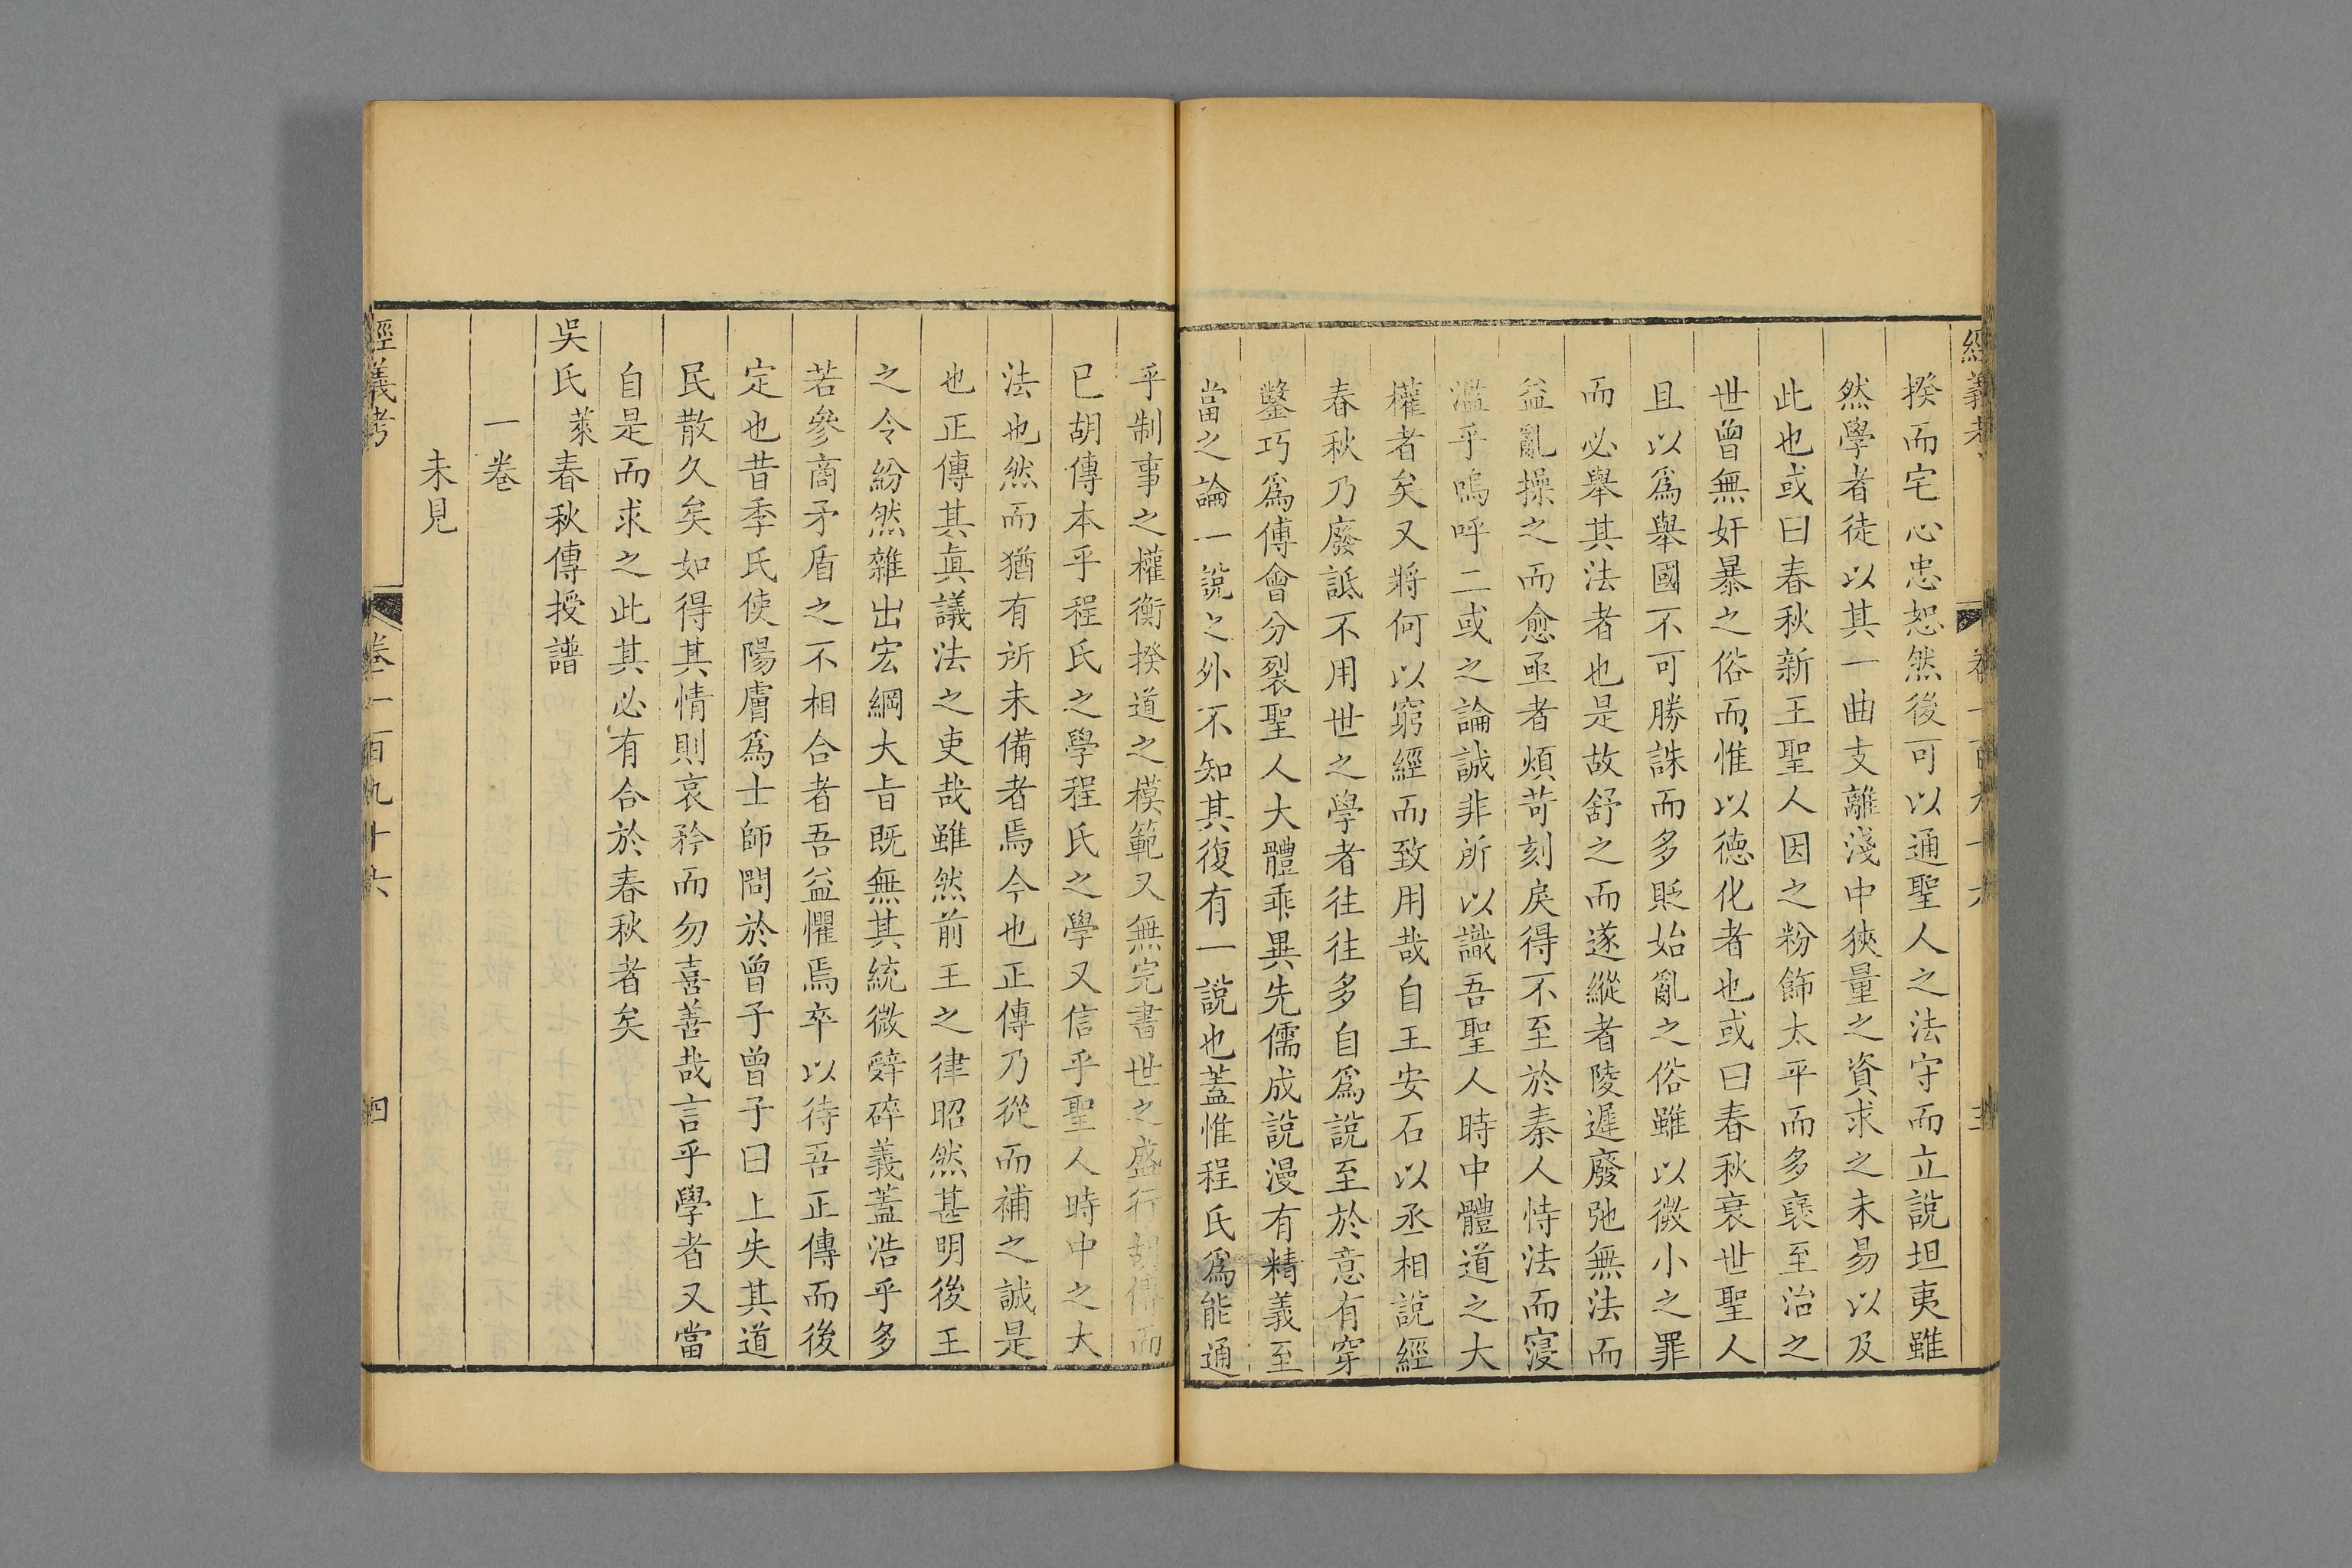 揆而宅心忠恕然後可以通聖人之法守而立說坦夷雖
然學者徒以其一曲支離淺中狹量之資求之未易以及
此也或曰春秋新王聖人因之粉飾太平而多襃至治之
世曾無奸暴之俗而惟以德化者也或曰春秋衰世聖人
且以爲舉國不可勝誅而多貶始亂之俗雖以微小之罪
而必舉其法者也是故舒之而遂縱者陵遲廢弛無法而
益亂操之而愈亟者煩苛刻戾得不至於秦人恃法而寖
濫乎嗚呼二或之論誠非所以識吾聖人時中體道之大
權者矣又將何以窮經而致用哉自王安石以丞相說經
春秋乃廢詆不用世之學者往往多自爲說至於意有穿
鑿巧爲傅會分裂聖人大體乖異先儒成說漫有精義至
當之論一說之外不知其復有一說也蓋惟程氏爲能通
乎制事之權衡揆道之模範又無完書世之盛行胡傳而
已胡傳本乎程氏之學程氏之學又信乎聖人時中之大
法也然而猶有所未備者焉今也正傳乃從而補之誠是
也正傳其眞議法之吏哉雖然前王之律昭然甚明後王
之令紛然雜出宏綱大旨既無其統微辭碎義蓋浩乎多
若參商矛盾之不相合者吾益懼焉卒以待吾正傳而後
定也昔季氏使陽膚爲士師問於曾子曾子曰上失其道
民散久矣如得其情則哀矜而勿喜善哉言乎學者又當
自是而求之此其必有合於春秋者矣
吳氏萊春秋傳授譜
一卷
未見
經義考 卷一百九十六 四